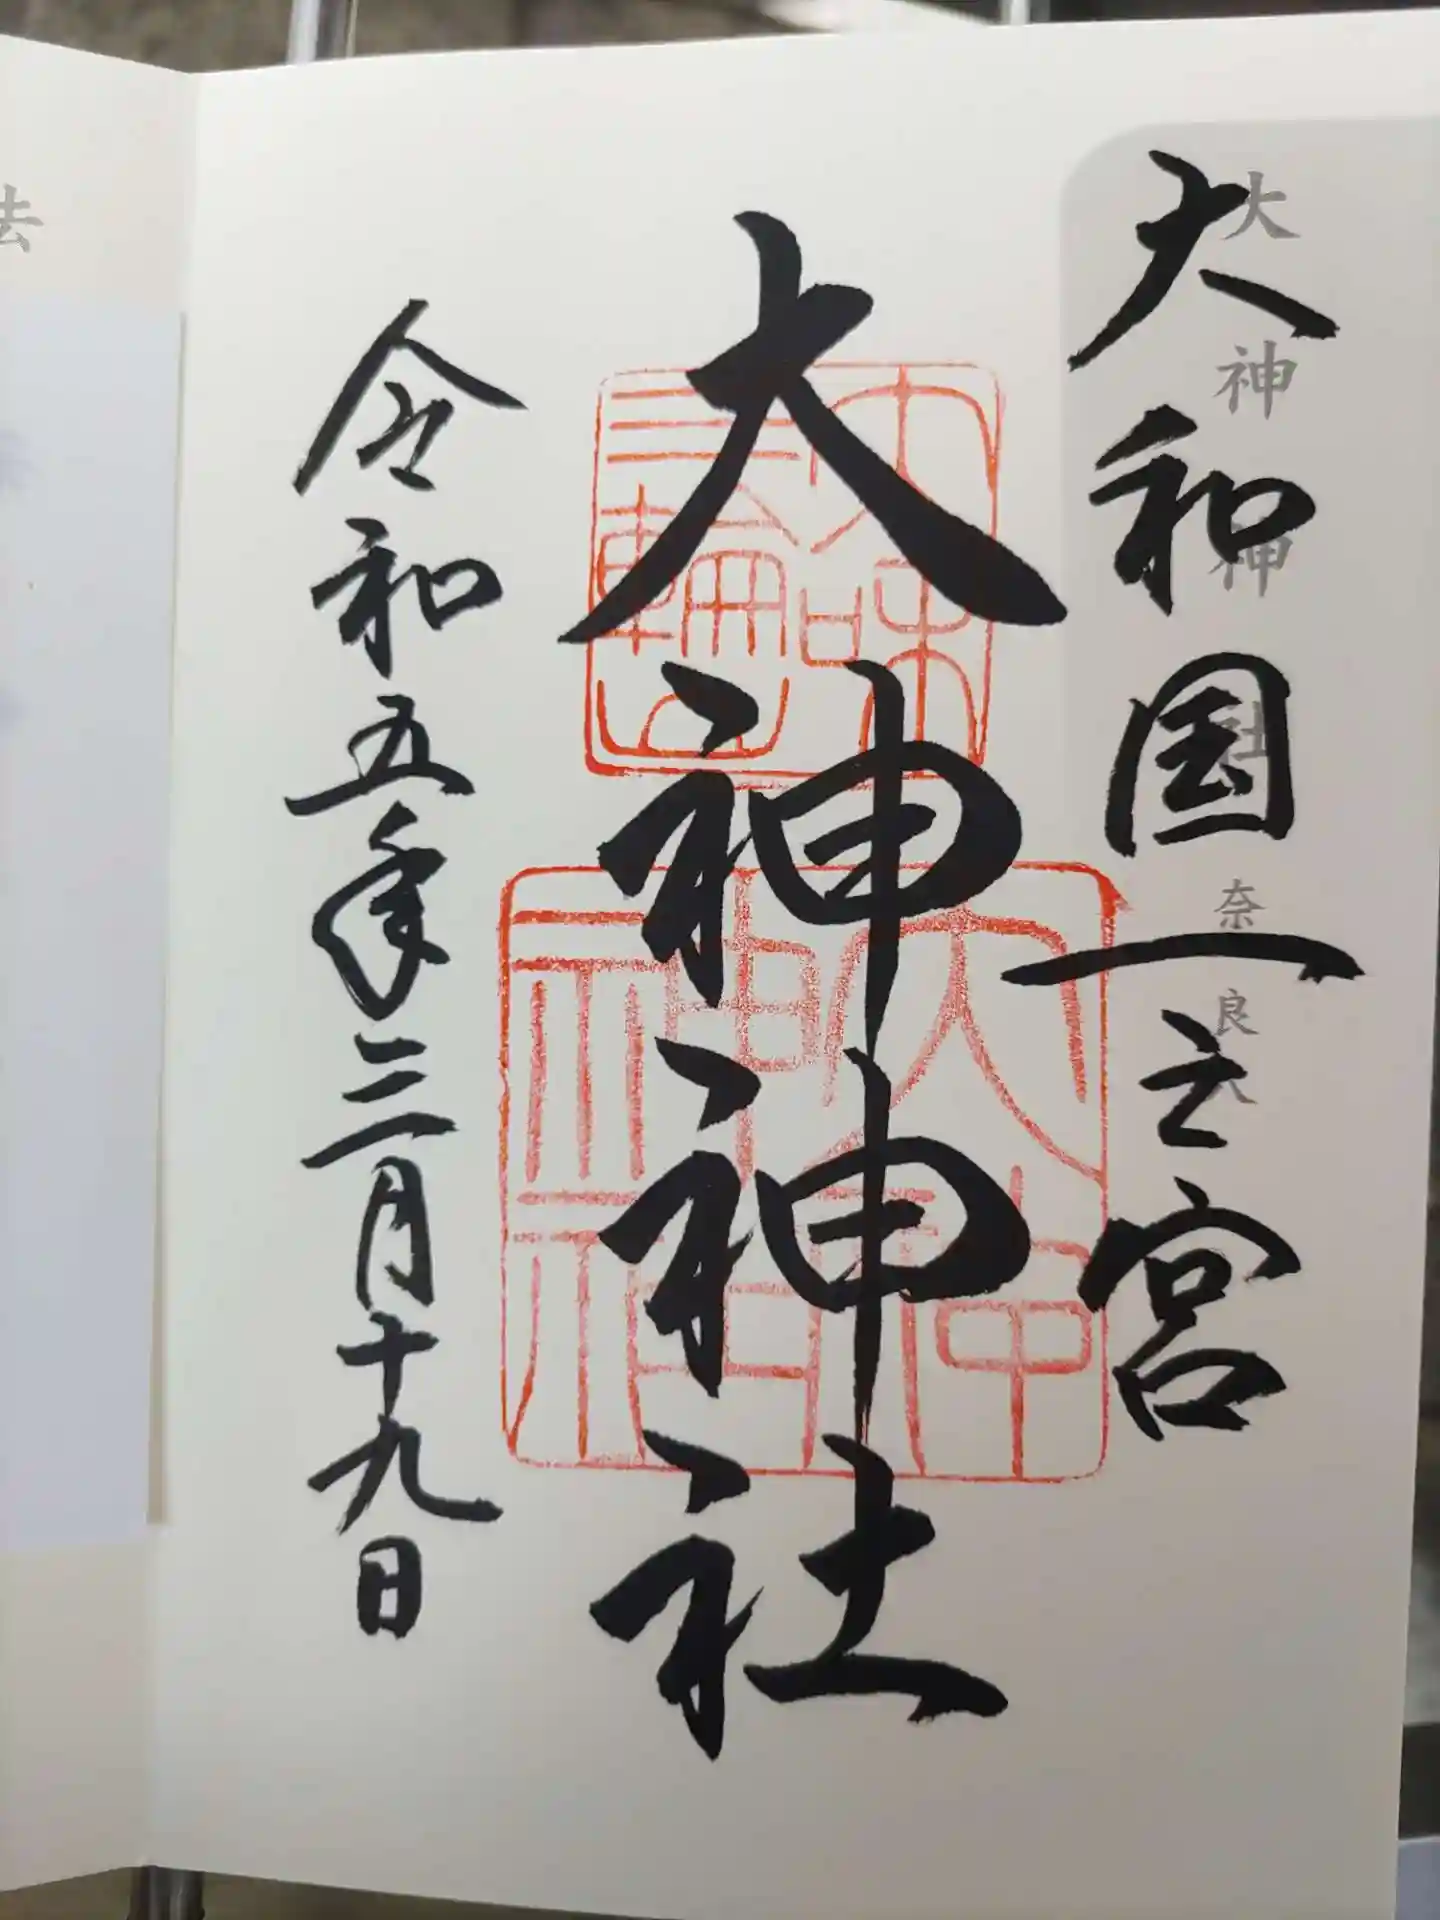 大和国一之宮
大神神社
奈良
大神神社
令和五年三月十九日
三輪
大神神社
法